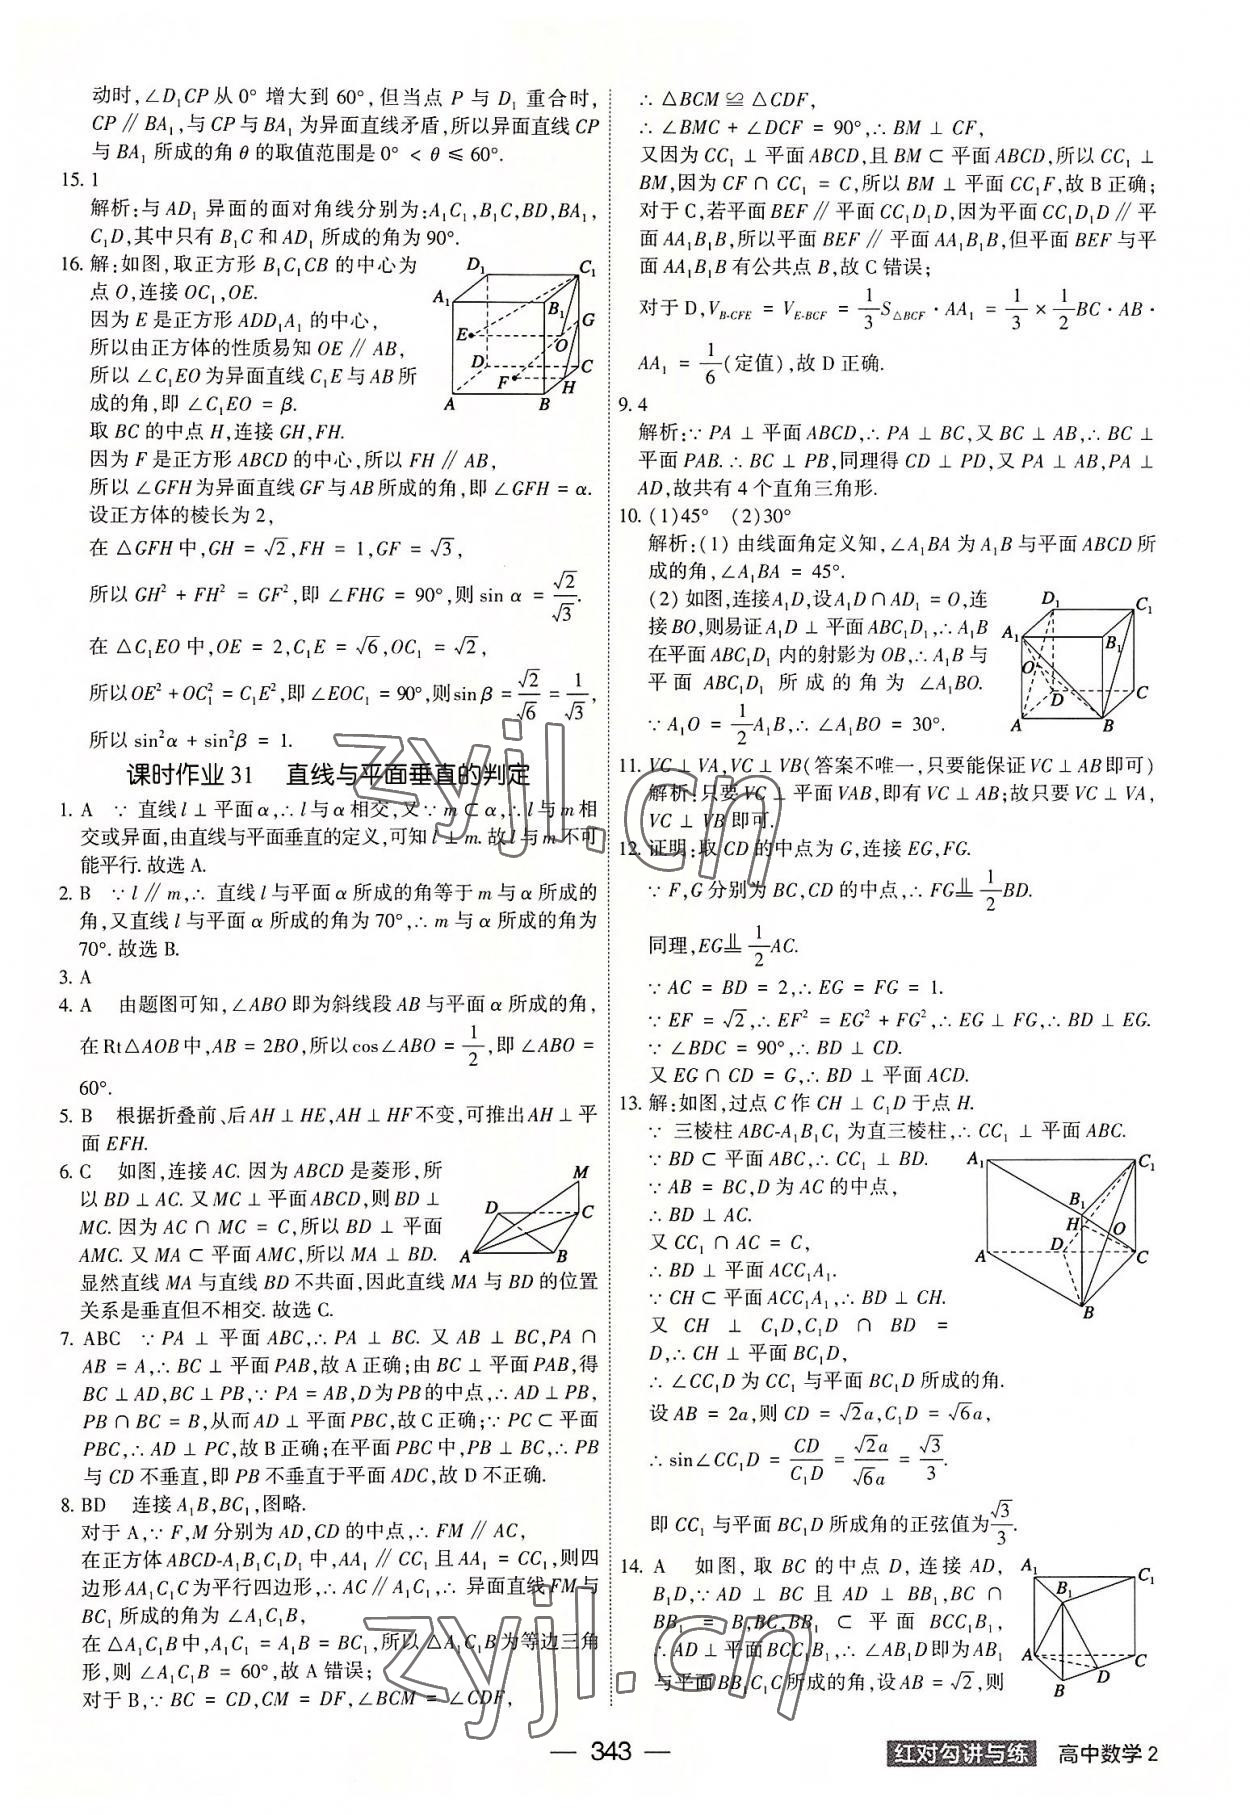 动时,∠D₁CP从0° 增大到60°,但当点 P 与 D₁ 重合时,
CP∥BA₁,与CP与BA₁ 为异面直线矛盾,所以异面直线CP
与BA₁ 所成的角θ的取值范围是0° < θ ≤ 60°.
15. 1
解析:与AD₁ 异面的面对角线分别为:A₁C₁,B₁C,BD,BA₁,
C₁D,其中只有B₁C和AD₁ 所成的角为90°.
16. 解:如图,取正方形 B₁C₁CB 的中心为
点O,连接OC₁,OE.
因为E是正方形ADD₁A₁ 的中心,
所以由正方体的性质易知OE∥AB,
所以∠C₁EO为异面直线C₁E与AB所
成的角,即∠C₁EO = β.
取BC的中点H,连接GH,FH.
因为F是正方形ABCD的中心,所以FH∥AB,
所以∠GFH为异面直线GF与AB所成的角,即∠GFH = α.
设正方体的棱长为2,
在△GFH中,GH = √2,FH = 1,GF = √3,
所以GH² + FH² = GF²,即∠FHG = 90°,则sin α = √2/√3.
在△C₁EO中,OE = 2,C₁E = √6,OC₁ = √2,
所以OE²+OC₁²=C₁E²,即∠EOC₁ = 90°,则sinβ = √2/√6 = 1/√3,
所以sin²α + sin²β = 1.
D₁ C₁ A₁ B₁ G E O D C F H A B
课时作业31 直线与平面垂直的判定
1. A ∵ 直线l⊥平面α,∴l与α相交,又∵m⊂α,∴l与m相
交或异面,由直线与平面垂直的定义,可知l⊥m.故l与m不可
能平行.故选A.
2. B ∵l∥m,∴ 直线l与平面α所成的角等于m与α所成的
角,又直线l与平面α所成的角为70°,∴m与α所成的角为
70°.故选B.
3. A
4. A 由题图可知,∠ABO即为斜线段AB与平面α所成的角,
在Rt△AOB中,AB = 2BO,所以cos∠ABO = 1/2,即∠ABO =
60°.
5. B 根据折叠前、后AH⊥HE,AH⊥HF不变,可推出AH⊥平
面EFH.
6. C 如图,连接AC.因为ABCD是菱形,所
以BD⊥AC.又MC⊥平面ABCD,则BD⊥
MC.因为AC∩MC = C,所以BD⊥平面
AMC.又MA⊂平面AMC,所以MA⊥BD.
显然直线MA与直线BD不共面,因此直线MA与BD的位置
关系是垂直但不相交.故选C.
M D C A B
7. ABC ∵PA⊥平面ABC,∴PA⊥BC.又AB⊥BC,PA∩
AB = A,∴BC⊥平面PAB,故A正确;由BC⊥平面PAB,得
BC⊥AD,BC⊥PB,∵PA = AB,D为PB的中点,∴AD⊥PB,
PB∩BC = B,从而AD⊥平面PBC,故C正确;∵PC⊂平面
PBC,∴AD⊥PC,故B正确;在平面PBC中,PB⊥BC,∴PB
与CD不垂直,即PB不垂直于平面ADC,故D不正确.
8. BD 连接A₁B,BC₁,图略.
对于A,∵F,M分别为AD,CD的中点,∴FM∥AC,
在正方体ABCD-A₁B₁C₁D₁ 中,AA₁∥CC₁且AA₁ = CC₁,则四
边形AA₁C₁C为平行四边形,∴AC∥A₁C₁,∴ 异面直线FM与
BC₁ 所成的角为∠A₁C₁B,
在△A₁C₁B中,A₁C₁ = A₁B = BC₁,所以△A₁C₁B为等边三角
形,则∠A₁C₁B = 60°,故A错误;
对于B,∵BC = CD,CM = DF,∠BCM = ∠CDF,
∴△BCM≌△CDF,
∴∠BMC + ∠DCF = 90°,∴BM⊥CF,
又因为CC₁⊥平面ABCD,且BM⊂平面ABCD,所以CC₁⊥
BM,因为CF∩CC₁ = C,所以BM⊥平面CC₁F,故B正确;
对于C,若平面BEF∥平面CC₁D₁D,因为平面CC₁D₁D∥平
面AA₁B₁B,所以平面BEF∥平面AA₁B₁B,但平面BEF与平
面AA₁B₁B有公共点B,故C错误;
对于D,V_{B-CFE} = V_{E-BCF} = 1/3 S_{△BCF}·AA₁ = 1/3 × 1/2 BC·AB·
AA₁ = 1/6(定值),故D正确.
9. 4
解析:∵PA⊥平面ABCD,∴PA⊥BC,又BC⊥AB,∴BC⊥
平面PAB.∴BC⊥PB,同理得CD⊥PD,又PA⊥AB,PA⊥
AD,故共有4个直角三角形.
10. (1)45° (2)30°
解析:(1) 由线面角定义知,∠A₁BA为A₁B与平面ABCD所
成的角,∠A₁BA = 45°.
(2) 如图,连接A₁D,设A₁D∩AD₁ = O,连
接BO,则易证A₁D⊥平面ABC₁D₁,∴A₁B
在平面ABC₁D₁ 内的射影为OB,∴A₁B与
平面ABC₁D₁ 所成的角为∠A₁BO.
∵A₁O = 1/2 A₁B,∴∠A₁BO = 30°.
D₁ C₁ A₁ B₁ O D C A B
11. VC⊥VA,VC⊥VB(答案不唯一,只要能保证VC⊥AB即可)
解析:只要VC⊥平面VAB,即有VC⊥AB;故只要VC⊥VA,
VC⊥VB即可.
12. 证明:取CD的中点为G,连接EG,FG.
∵F,G分别为BC,CD的中点,∴FG∥= 1/2 BD.
同理,EG∥= 1/2 AC.
∵AC = BD = 2,∴EG = FG = 1.
∵EF = √2,∴EF² = EG² + FG²,∴EG⊥FG,∴BD⊥EG.
∵∠BDC = 90°,∴BD⊥CD.
又EG∩CD = G,∴BD⊥平面ACD.
13. 解:如图,过点C作CH⊥C₁D于点H.
∵ 三棱柱ABC-A₁B₁C₁ 为直三棱柱,∴CC₁⊥平面ABC.
∵BD⊂平面ABC,∴CC₁⊥BD.
∵AB = BC,D为AC的中点,
∴BD⊥AC.
又CC₁∩AC = C,
∴BD⊥平面ACC₁A₁.
∵CH⊂平面ACC₁A₁,∴BD⊥CH.
又CH⊥C₁D,C₁D∩BD =
D,∴CH⊥平面BC₁D,
∴∠CC₁D为CC₁ 与平面BC₁D所成的角.
设AB = 2a,则CD = √2a,C₁D = √6a,
∴sin∠CC₁D = CD/C₁D = √2a/√6a = √3/3.
即CC₁ 与平面BC₁D所成角的正弦值为√3/3.
A₁ C₁ B₁ H O D A C B
14. A 如图,取BC的中点D,连接AD,
B₁D,∵AD⊥BC且AD⊥BB₁,BC∩
BB₁ = B,BC,BB₁⊂平面BCC₁B₁,
∴AD⊥平面BCC₁B₁,∴∠AB₁D即为AB₁
与平面BB₁C₁C所成的角,设AB = √2,则
A₁ C₁ B₁ A C D B
— 343 —
红对勾讲与练 高中数学2
zyjl.cn
zyjl.cn